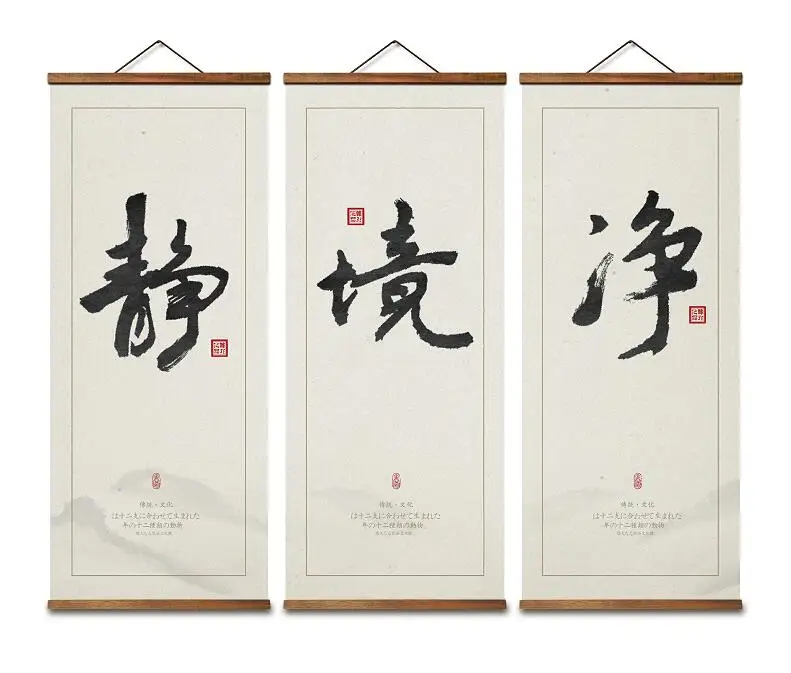 静
传统·文化
は十二支に合わせて生まれた
年の十二種類の動物
境
传统·文化
は十二支に合わせて生まれた
年の十二種類の動物
净
传统·文化
は十二支に合わせて生まれた
年の十二種類の動物